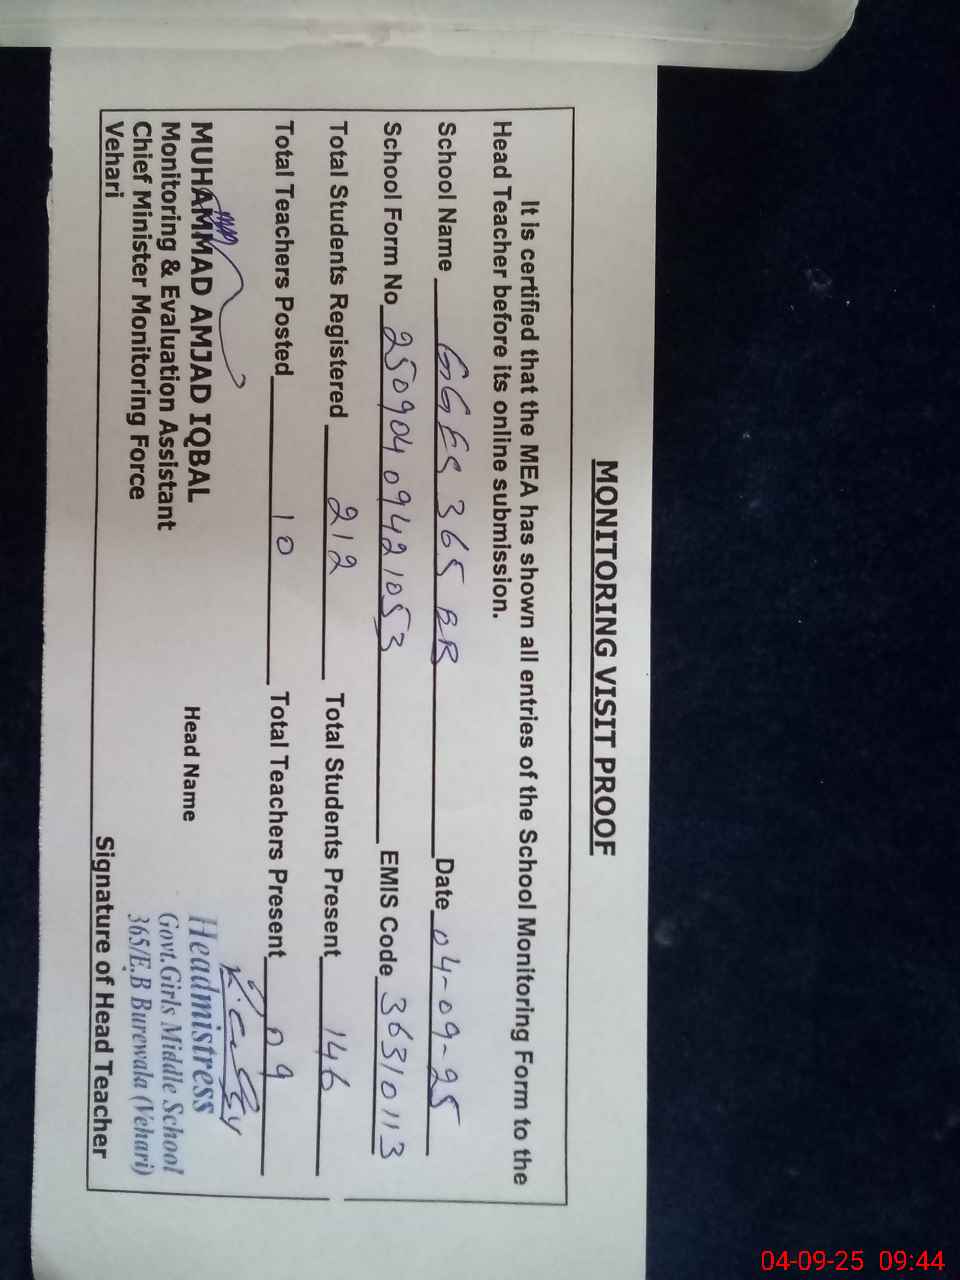 MONITORING VISIT PROOF
It is certified that the MEA has shown all entries of the School Monitoring Form to the
Head Teacher before its online submission.
School Name GGES 365 EB Date 04-09-25
School Form No 25090409421053 EMIS Code 36310113
Total Students Registered 212 Total Students Present 146
Total Teachers Posted 10 Total Teachers Present 09
MUHAMMAD AMJAD IQBAL
Monitoring & Evaluation Assistant
Chief Minister Monitoring Force
Vehari
Head Name
Headmistress
Govt.Girls Middle School
365/E.B Burewala (Vehari)
Signature of Head Teacher
04-09-25 09:44